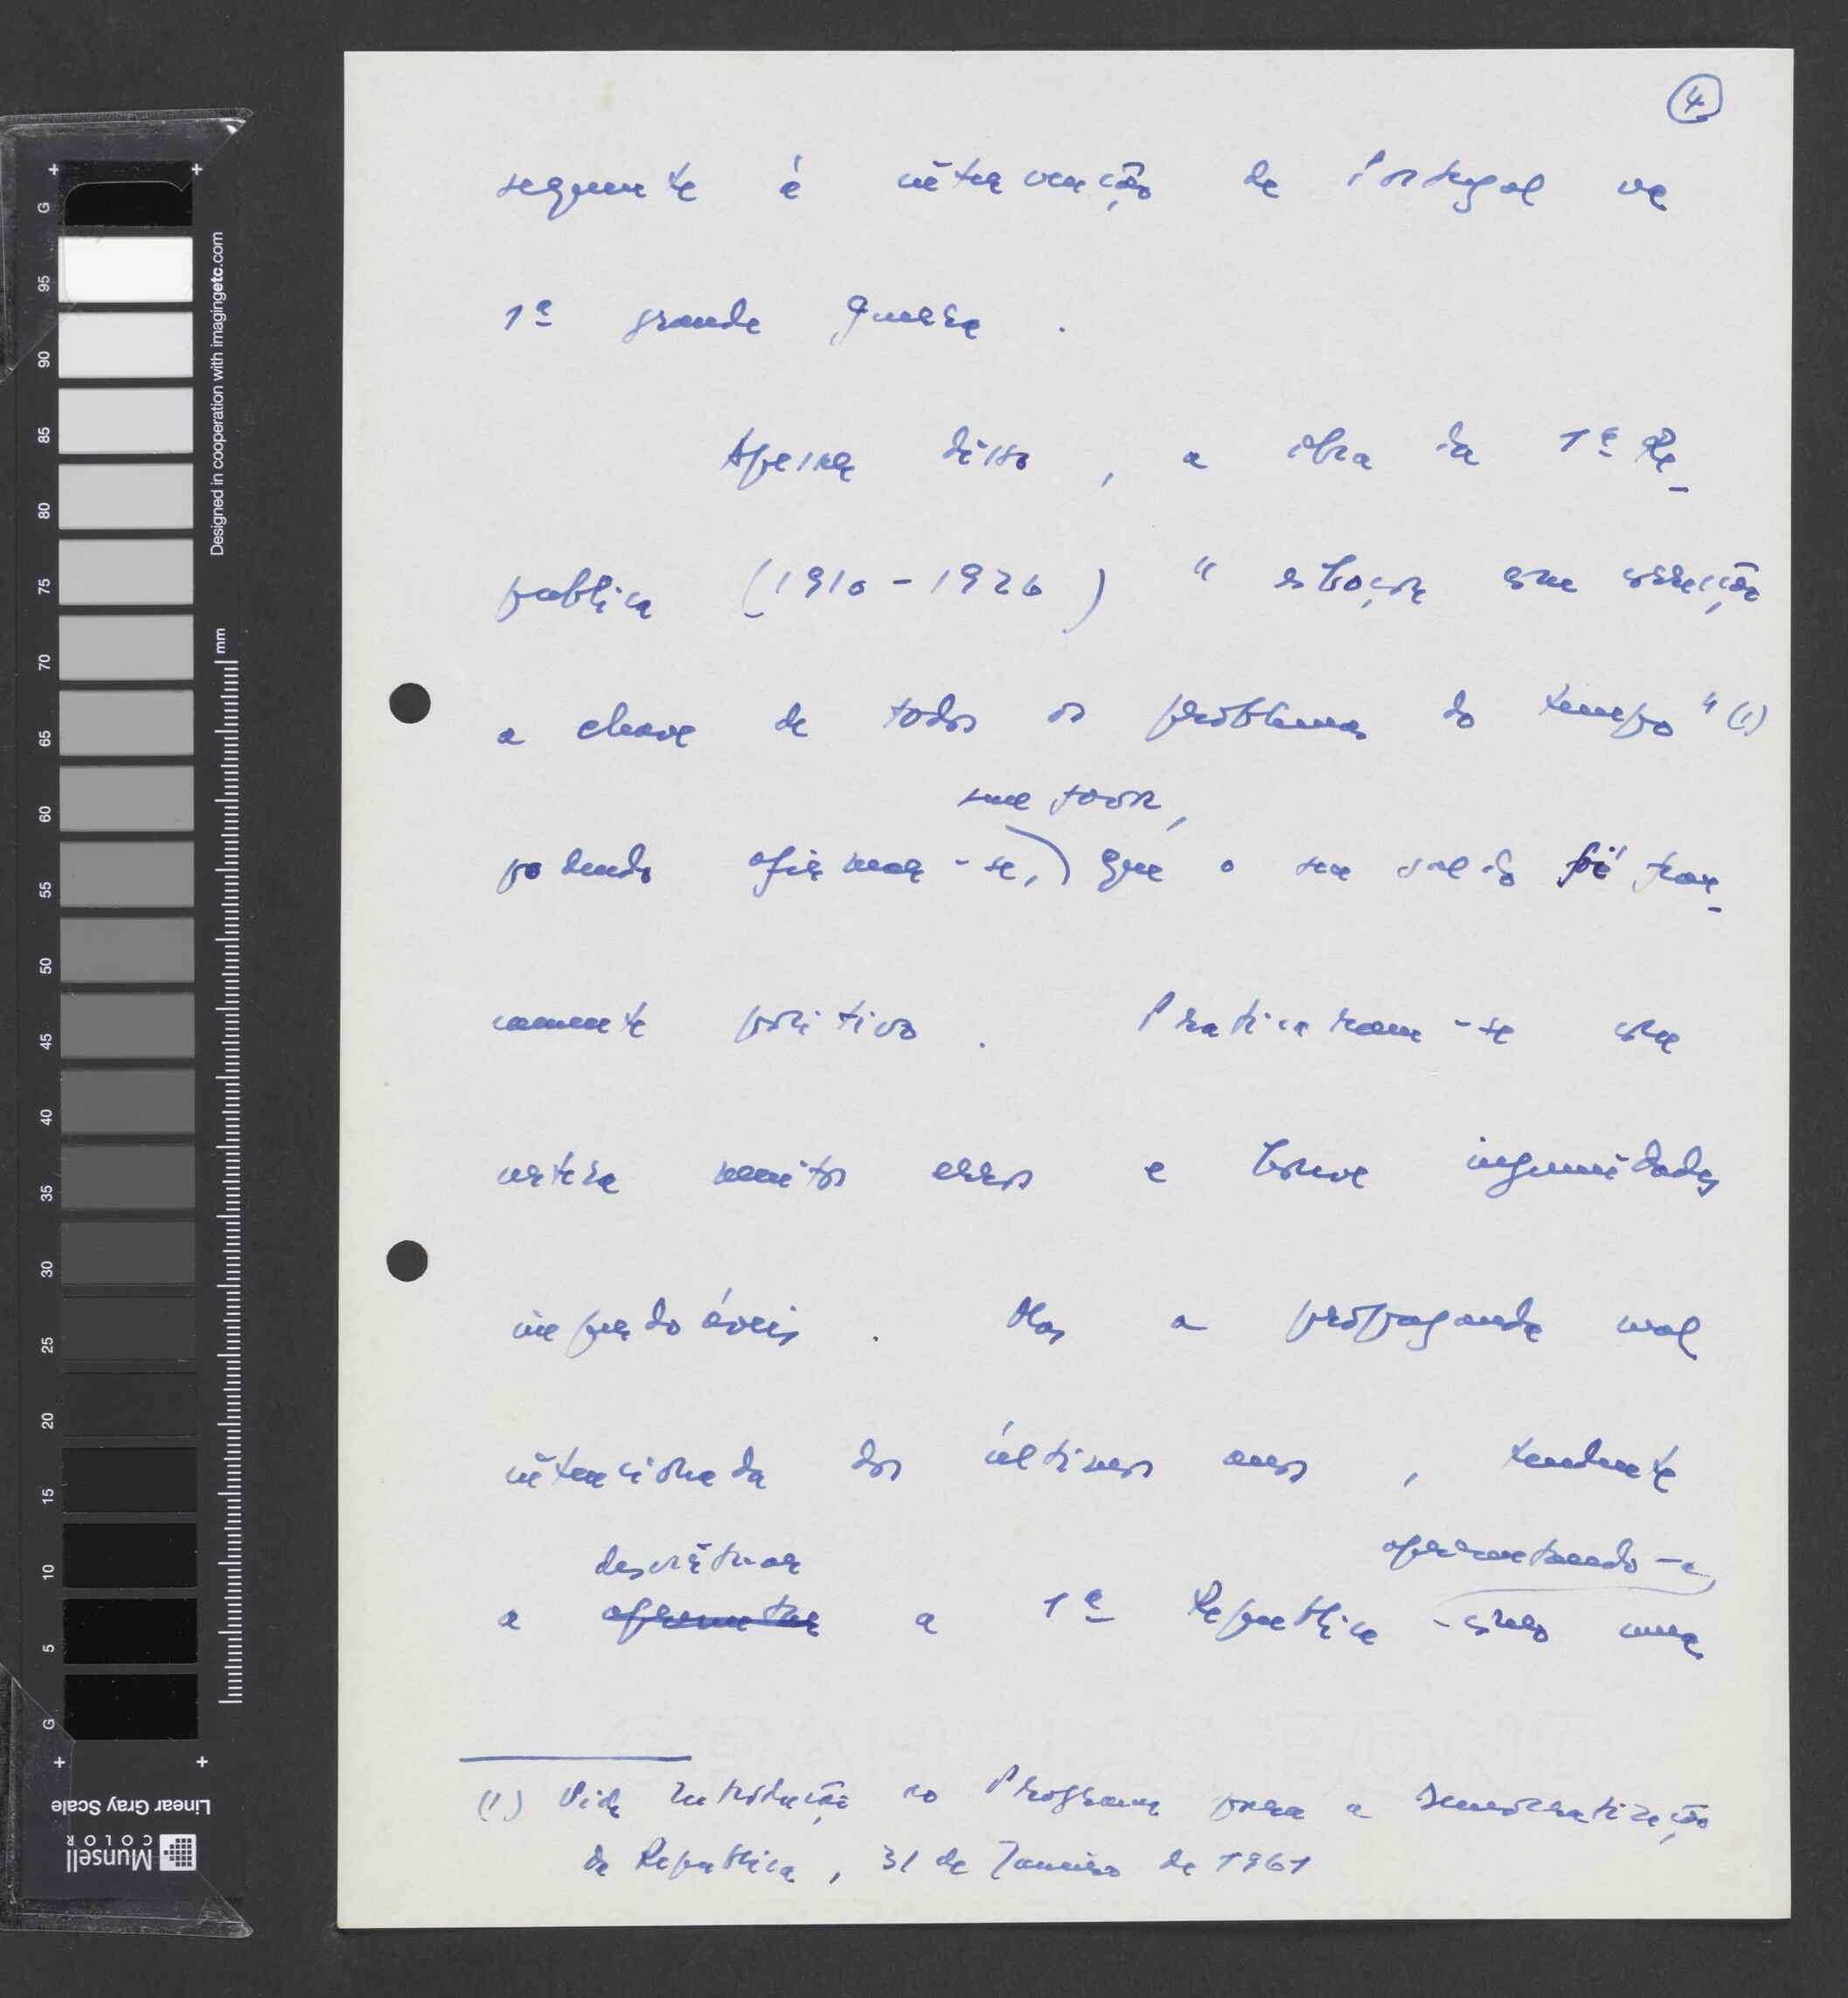 4
seguente à intervenção de Portugal na
1ª grande guerra.
Apesar disso, a obra da 1ª Re-
publica (1910-1926) "esboçou com correcção
a chave de todos os problemas do tempo" (1)
sem favor,
podendo afirmar-se, que o seu saldo foi fran-
camente positivo. Praticaram-se com
certeza muitos erros e houve ingenuidades
imperdoáveis. Mas a propaganda mal
intencionada dos últimos anos, tendente
desvirtuar apresentando-a
a apresentar a 1ª Republica como uma
(1) Vide Introdução ao Programa para a Democratização
da Republica, 31 de Janeiro de 1961
G 95 90 85 80 75 70 65 60 55 50 45 40 35 30 25 20 15 10 5 G
Designed in cooperation with imagingetc.com
mm
Munsell
COLOR
Linear Gray Scale